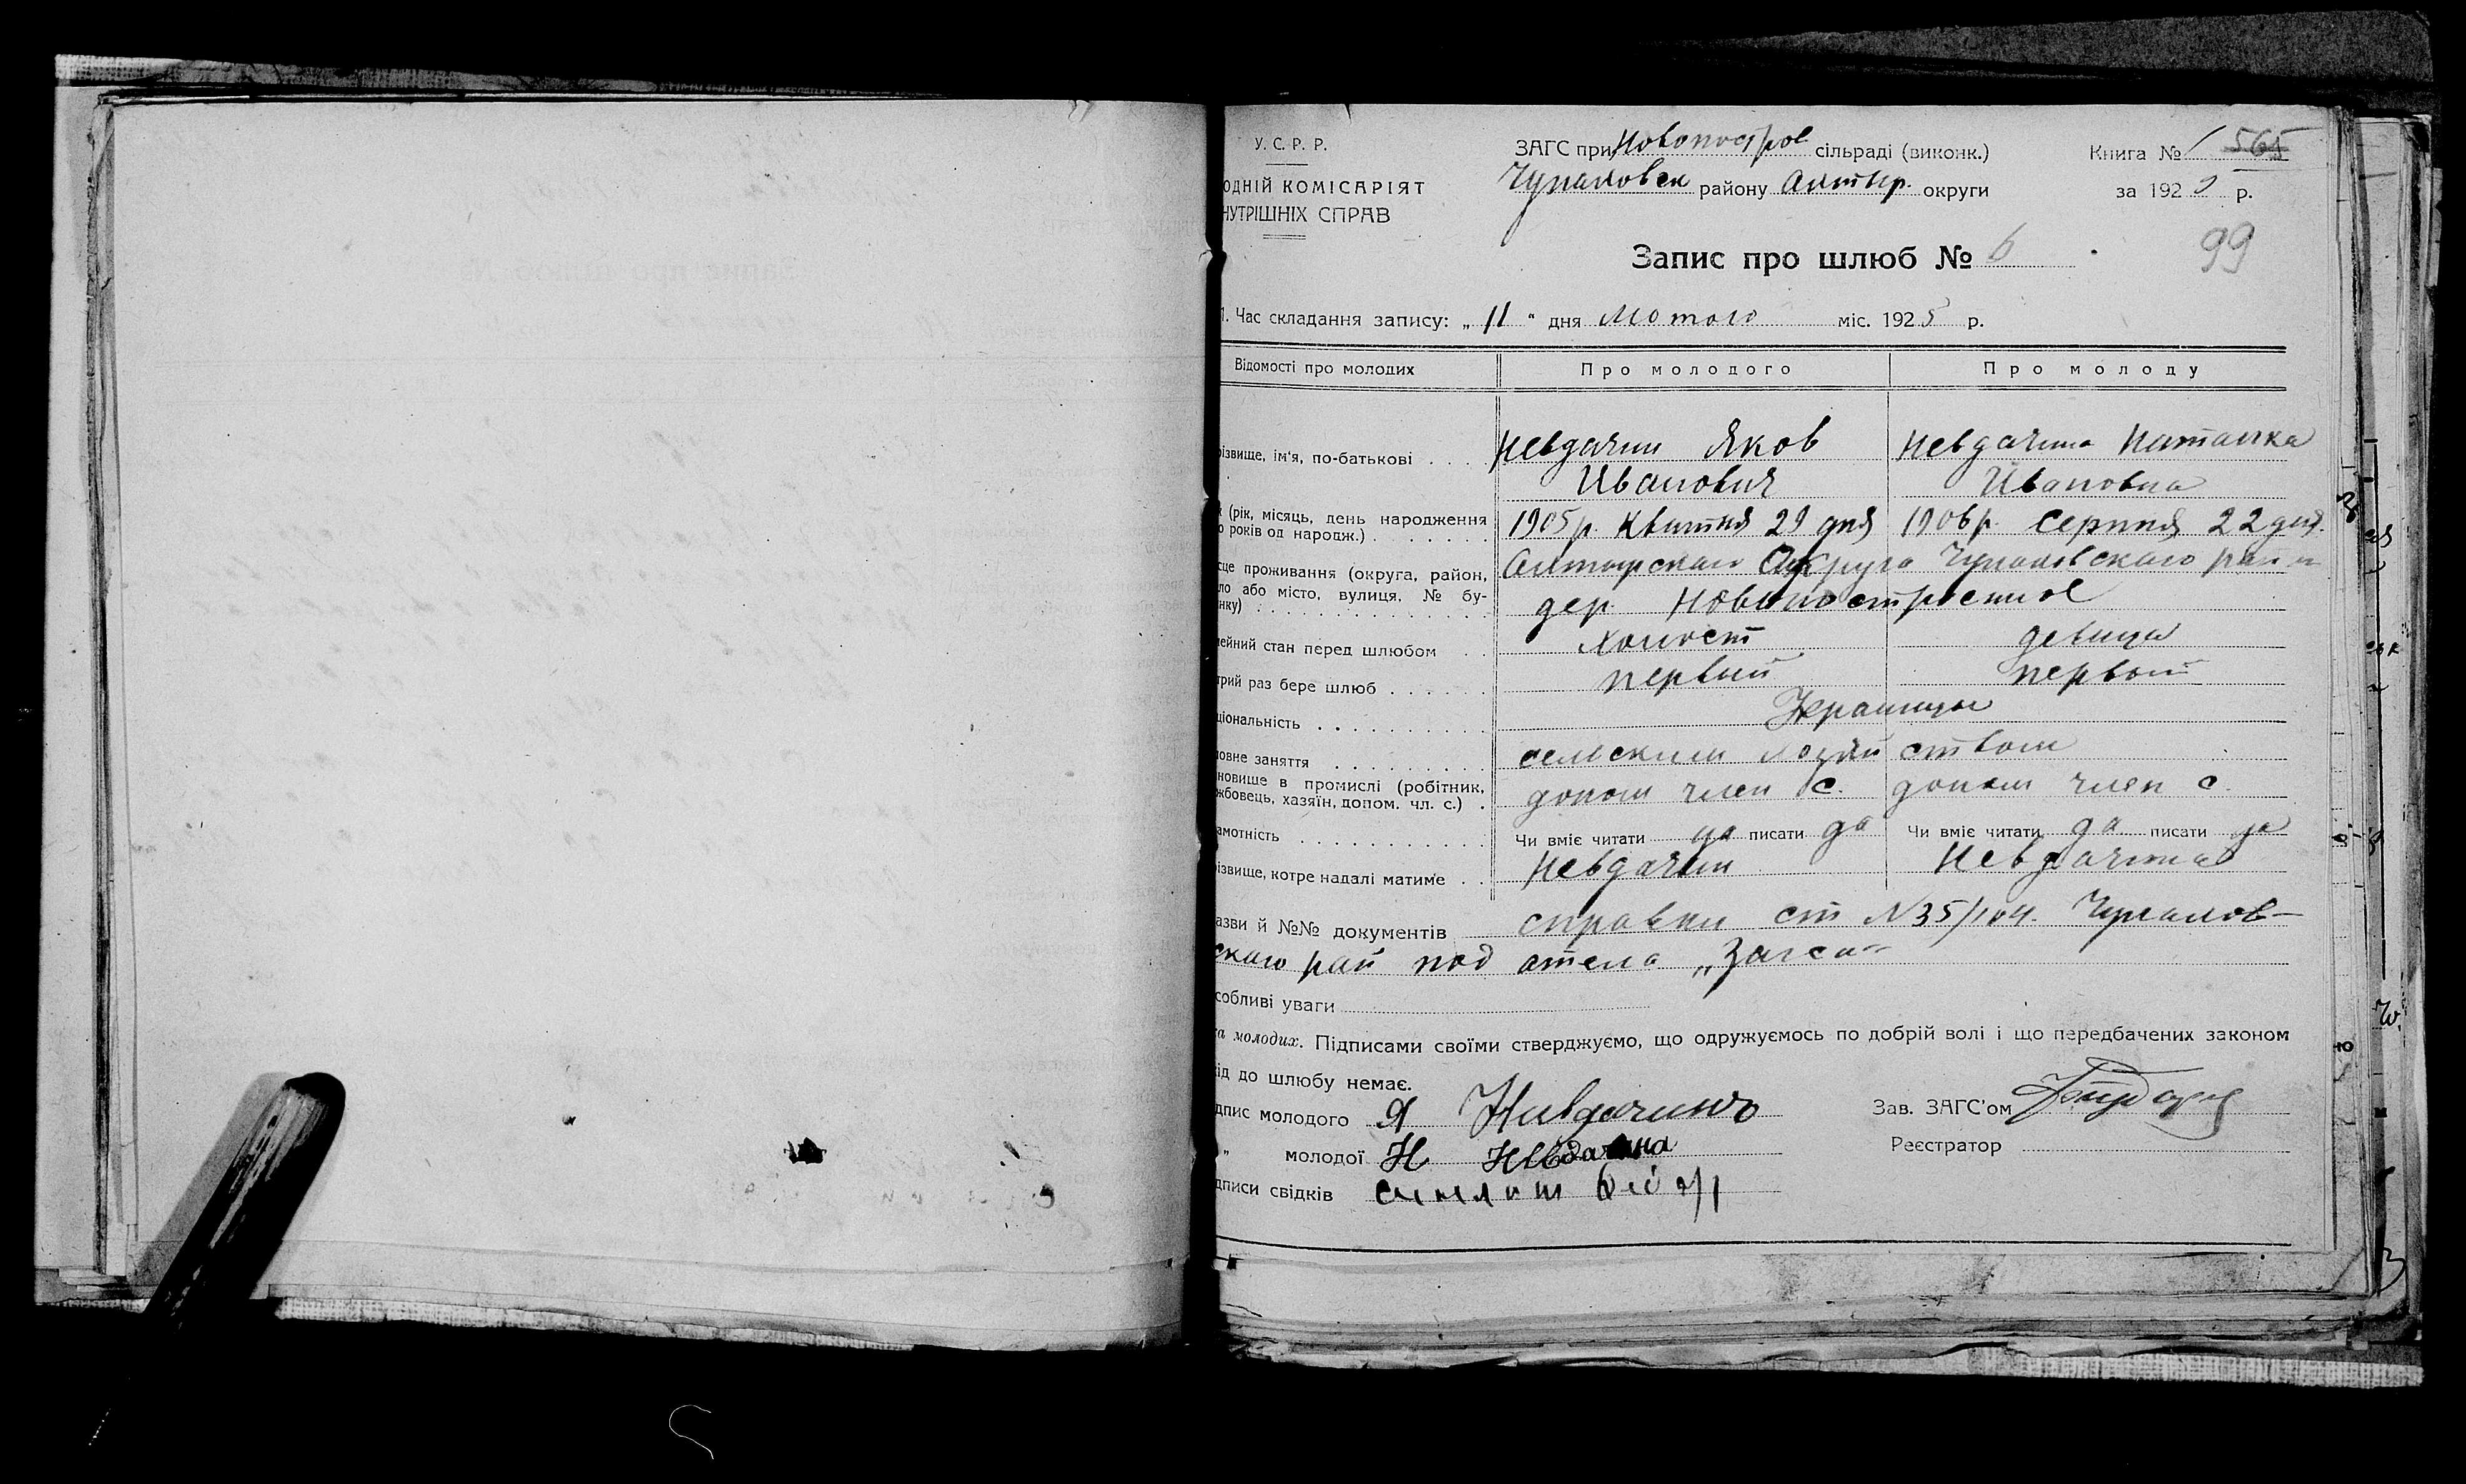 У. С. Р. Р.
ОДНІЙ КОМІСАРІЯТ
НУТРІШНІХ СПРАВ
ЗАГС при Новопостров сільраді (виконк.)
Чупаховск району Ахтыр. округи
Книга № 1 565
за 1925 р.
99
Запис про шлюб № 6
1. Час складання запису: „ 11 “ дня Лютого міс. 1925 р.
Відомості про молодих Про молодого Про молоду
різвище, ім'я, по-батькові Невдачин Яков Невдачина Наталка
Иванович Ивановна
(рік, місяць, день народження 1905 р. Квитня 29 дня 1906 р. Серпня 22 дня.
років од народж.)
сце проживання (округа, район, Ахтырскаго Округа Чупаховскаго район
ло або місто, вулиця, № бу-
инку) дер. Новопостроеное
ейний стан перед шлюбом холост девица
трий раз бере шлюб первый первый
ціональність Украинцы
овне заняття сельским хозяйством
новище в промислі (робітник,
жбовець, хазяїн, допом. чл. с.) допом член с. допом член с.
амотність Чи вміє читати да писати да Чи вміє читати да писати да
ізвище, котре надалі матиме Невдачин Невдачина
азви й №№ документів справки ст №35/104. Чупахов-
скаго рай под отела „Загса“
собливі уваги
а молодих. Підписами своїми стверджуємо, що одружуємось по добрій волі і що передбачених законом
ід до шлюбу немає.
дпис молодого Я Нивдачинъ
Зав. ЗАГС'ом
„ молодої Н Нивдачина
Реєстратор
дписи свідків